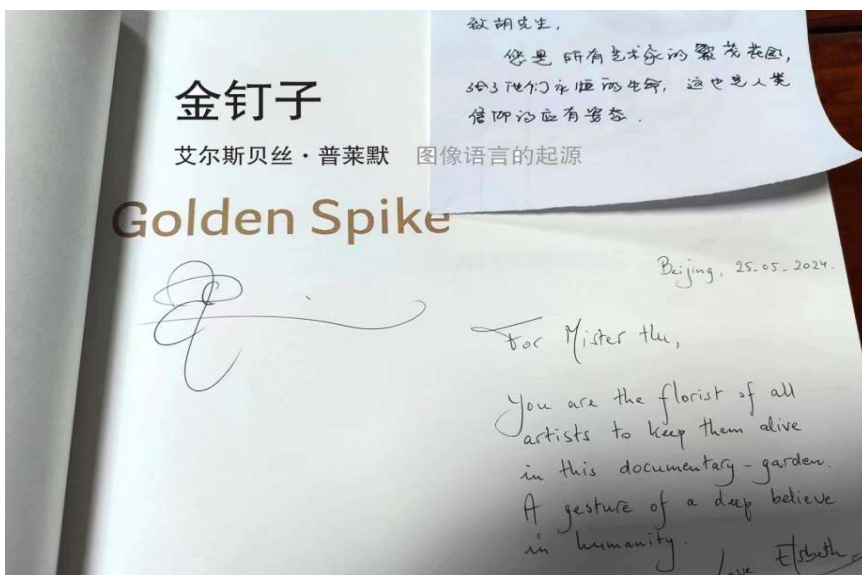 致胡先生，
您是所有艺术家的繁茂花园，
给了他们永恒的生命，这也是人类
信仰的应有姿态．
金钉子
艾尔斯贝丝·普莱默 图像语言的起源
Golden Spike
Beijing, 25-05-2024.
For Mister Hu,
You are the florist of all
artists to keep them alive
in this documentary-garden.
A gesture of a deep believe
in humanity.
Love Elsbeth